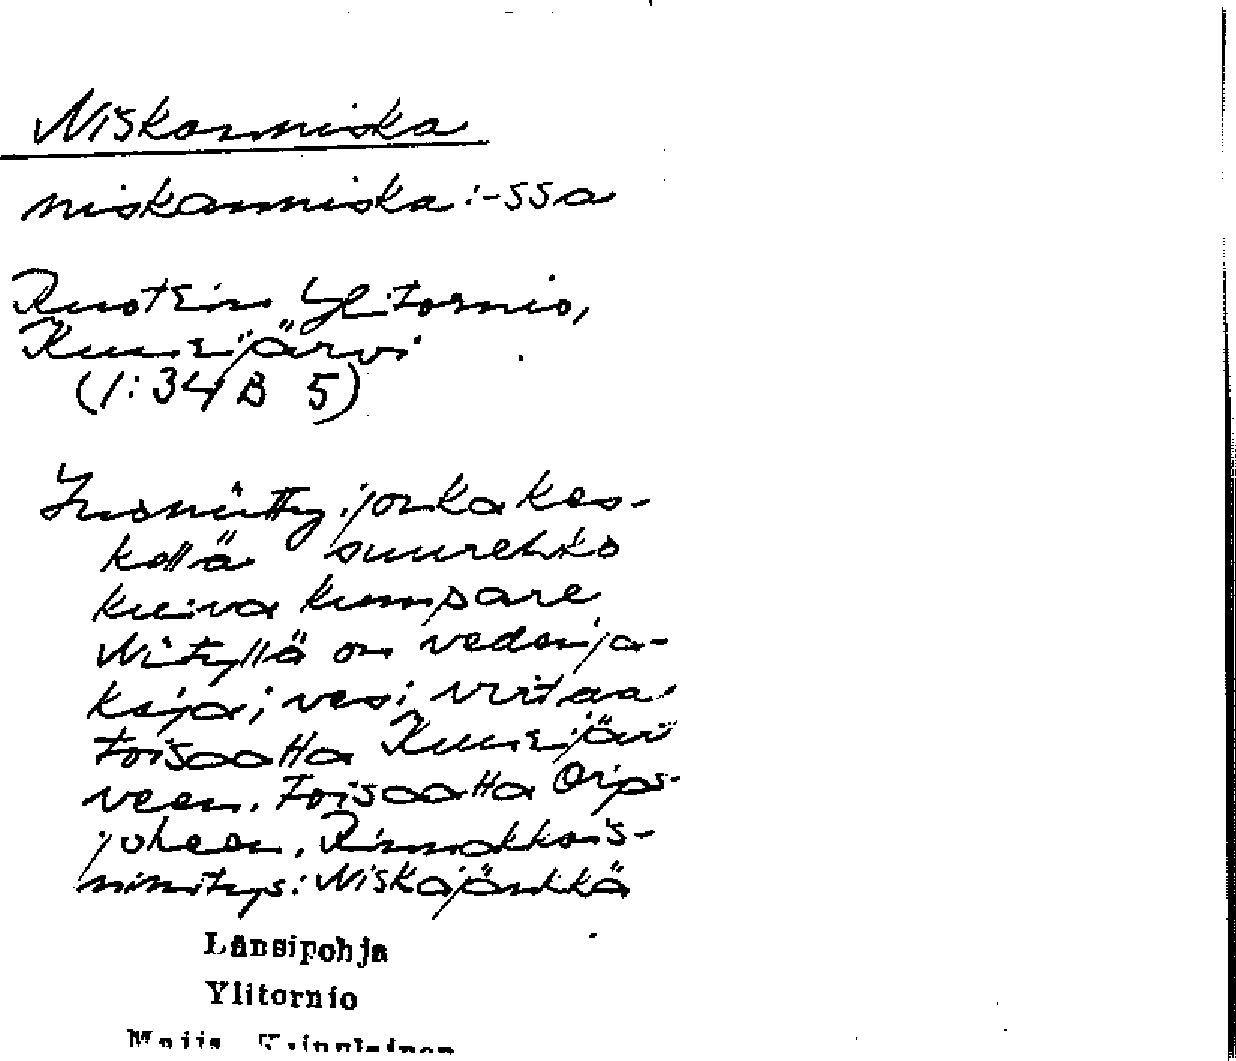 Niskanniska
niskanniska:-ssa
Ruotsin Ylitornio,
Kuusijärvi
(1:34/B 5)
Luoniitty, jonka kes-
kellä suurehko
kuiva kumpare
Niityllä on vedenja-
kaja; vesi virtaa
toisaalta Kuusijär
veen, toisaalta Orjas-
jokeen. Rinnakkais-
nimitys: Niskajänkkä
Länsipohja
Ylitornio